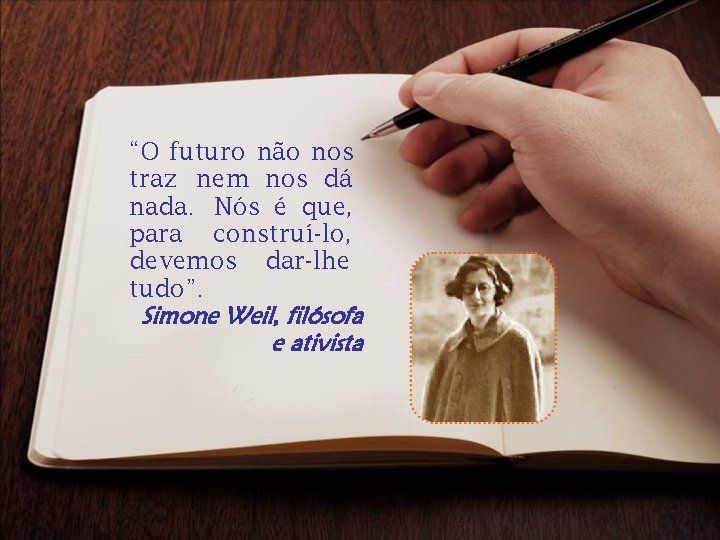 “O futuro não nos
traz nem nos dá
nada. Nós é que,
para construí-lo,
devemos dar-lhe
tudo”.
Simone Weil, filósofa
e ativista